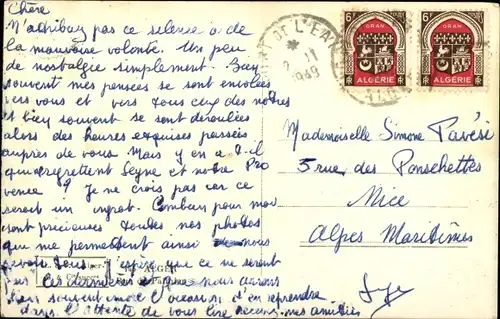 Chère
N'attribuez pas ce silence à de
la mauvaise volonté. Un peu
de nostalgie simplement. Bien
souvent mes pensées se sont envolées
vers vous et vers tous ceux des nôtres
et bien souvent se sont déroulées
alors des heures exquises passées
auprès de vous. Mais y en a-t-il
qui regrettent Seyne et notre Pro
vence ? Je ne crois pas car ce
serait un ingrat. Combien pour moi
sont précieuses toutes nos photos
qui me permettent ainsi de vous
revoir tous. J'espère que ce ne seront
pas les dernières et que nous aurons
bien souvent l'occasion d'en reprendre
dans l'attente de vous lire recevez mes amitiés
ALGER
Mademoiselle Simone Pavési
5 rue des Ponchettes
Nice
Alpes Maritimes
6F
ORAN
ALGÉRIE
6F
ORAN
ALGÉRIE
DE L'EAU
2-11
1949